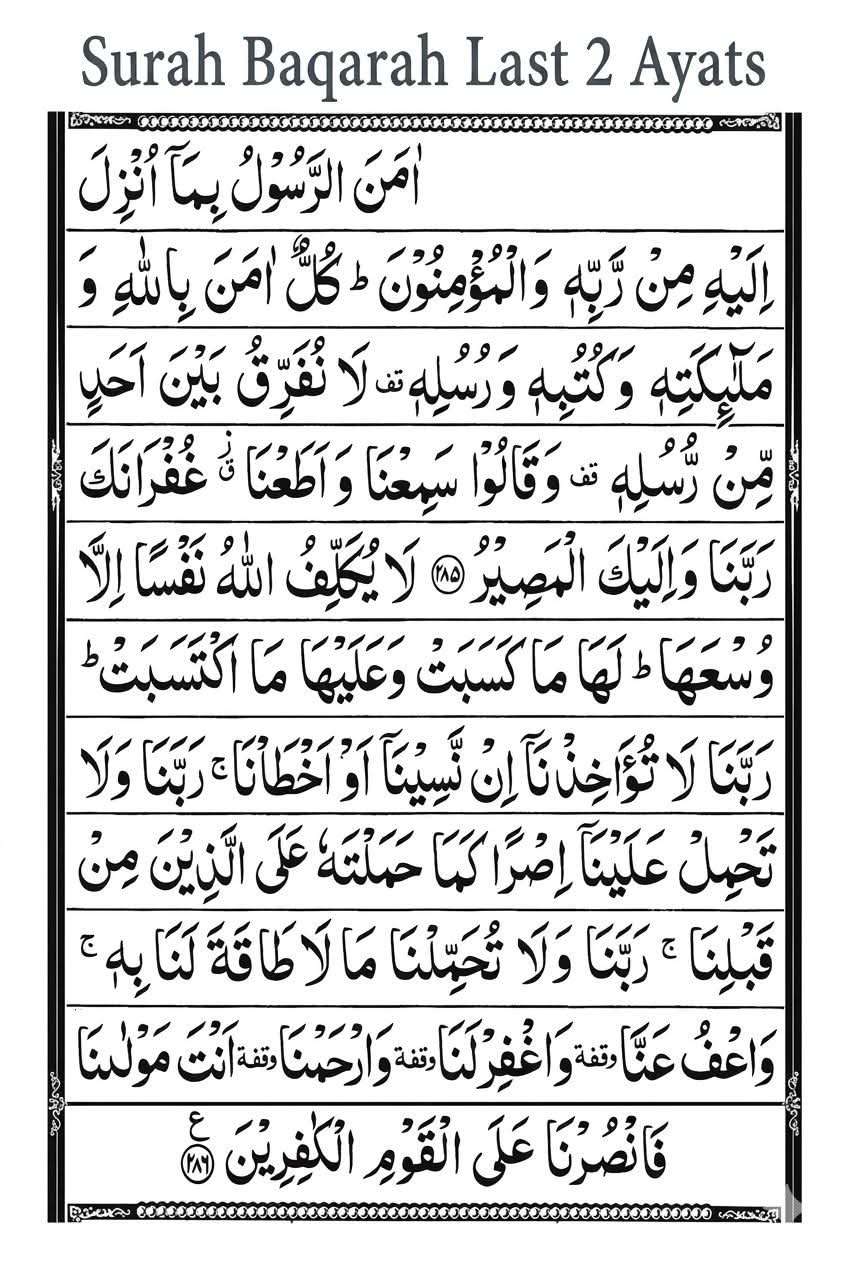 Surah Baqarah Last 2 Ayats
اٰمَنَ الرَّسُوْلُ بِمَآ اُنْزِلَ
اِلَيْهِ مِنْ رَّبِّهٖ وَالْمُؤْمِنُوْنَ ؕ كُلٌّ اٰمَنَ بِاللّٰهِ وَ
مَلٰٓئِكَتِهٖ وَكُتُبِهٖ وَرُسُلِهٖ قف لَا نُفَرِّقُ بَيْنَ اَحَدٍ
مِّنْ رُّسُلِهٖ قف وَقَالُوْا سَمِعْنَا وَاَطَعْنَا ز ق غُفْرَانَكَ
رَبَّنَا وَاِلَيْكَ الْمَصِيْرُ ﴿۲۸۵﴾ لَا يُكَلِّفُ اللّٰهُ نَفْسًا اِلَّا
وُسْعَهَا ؕ لَهَا مَا كَسَبَتْ وَعَلَيْهَا مَا اكْتَسَبَتْ ؕ
رَبَّنَا لَا تُؤَاخِذْنَآ اِنْ نَّسِيْنَآ اَوْ اَخْطَاْنَا ۚ رَبَّنَا وَلَا
تَحْمِلْ عَلَيْنَآ اِصْرًا كَمَا حَمَلْتَهٗ عَلَى الَّذِيْنَ مِنْ
قَبْلِنَا ۚ رَبَّنَا وَلَا تُحَمِّلْنَا مَا لَا طَاقَةَ لَنَا بِهٖ ۚ
وَاعْفُ عَنَّا وقفة وَاغْفِرْ لَنَا وقفة وَارْحَمْنَا وقفة اَنْتَ مَوْلٰىنَا
فَانْصُرْنَا عَلَى الْقَوْمِ الْكٰفِرِيْنَ ﴿۲۸۶﴾ ع